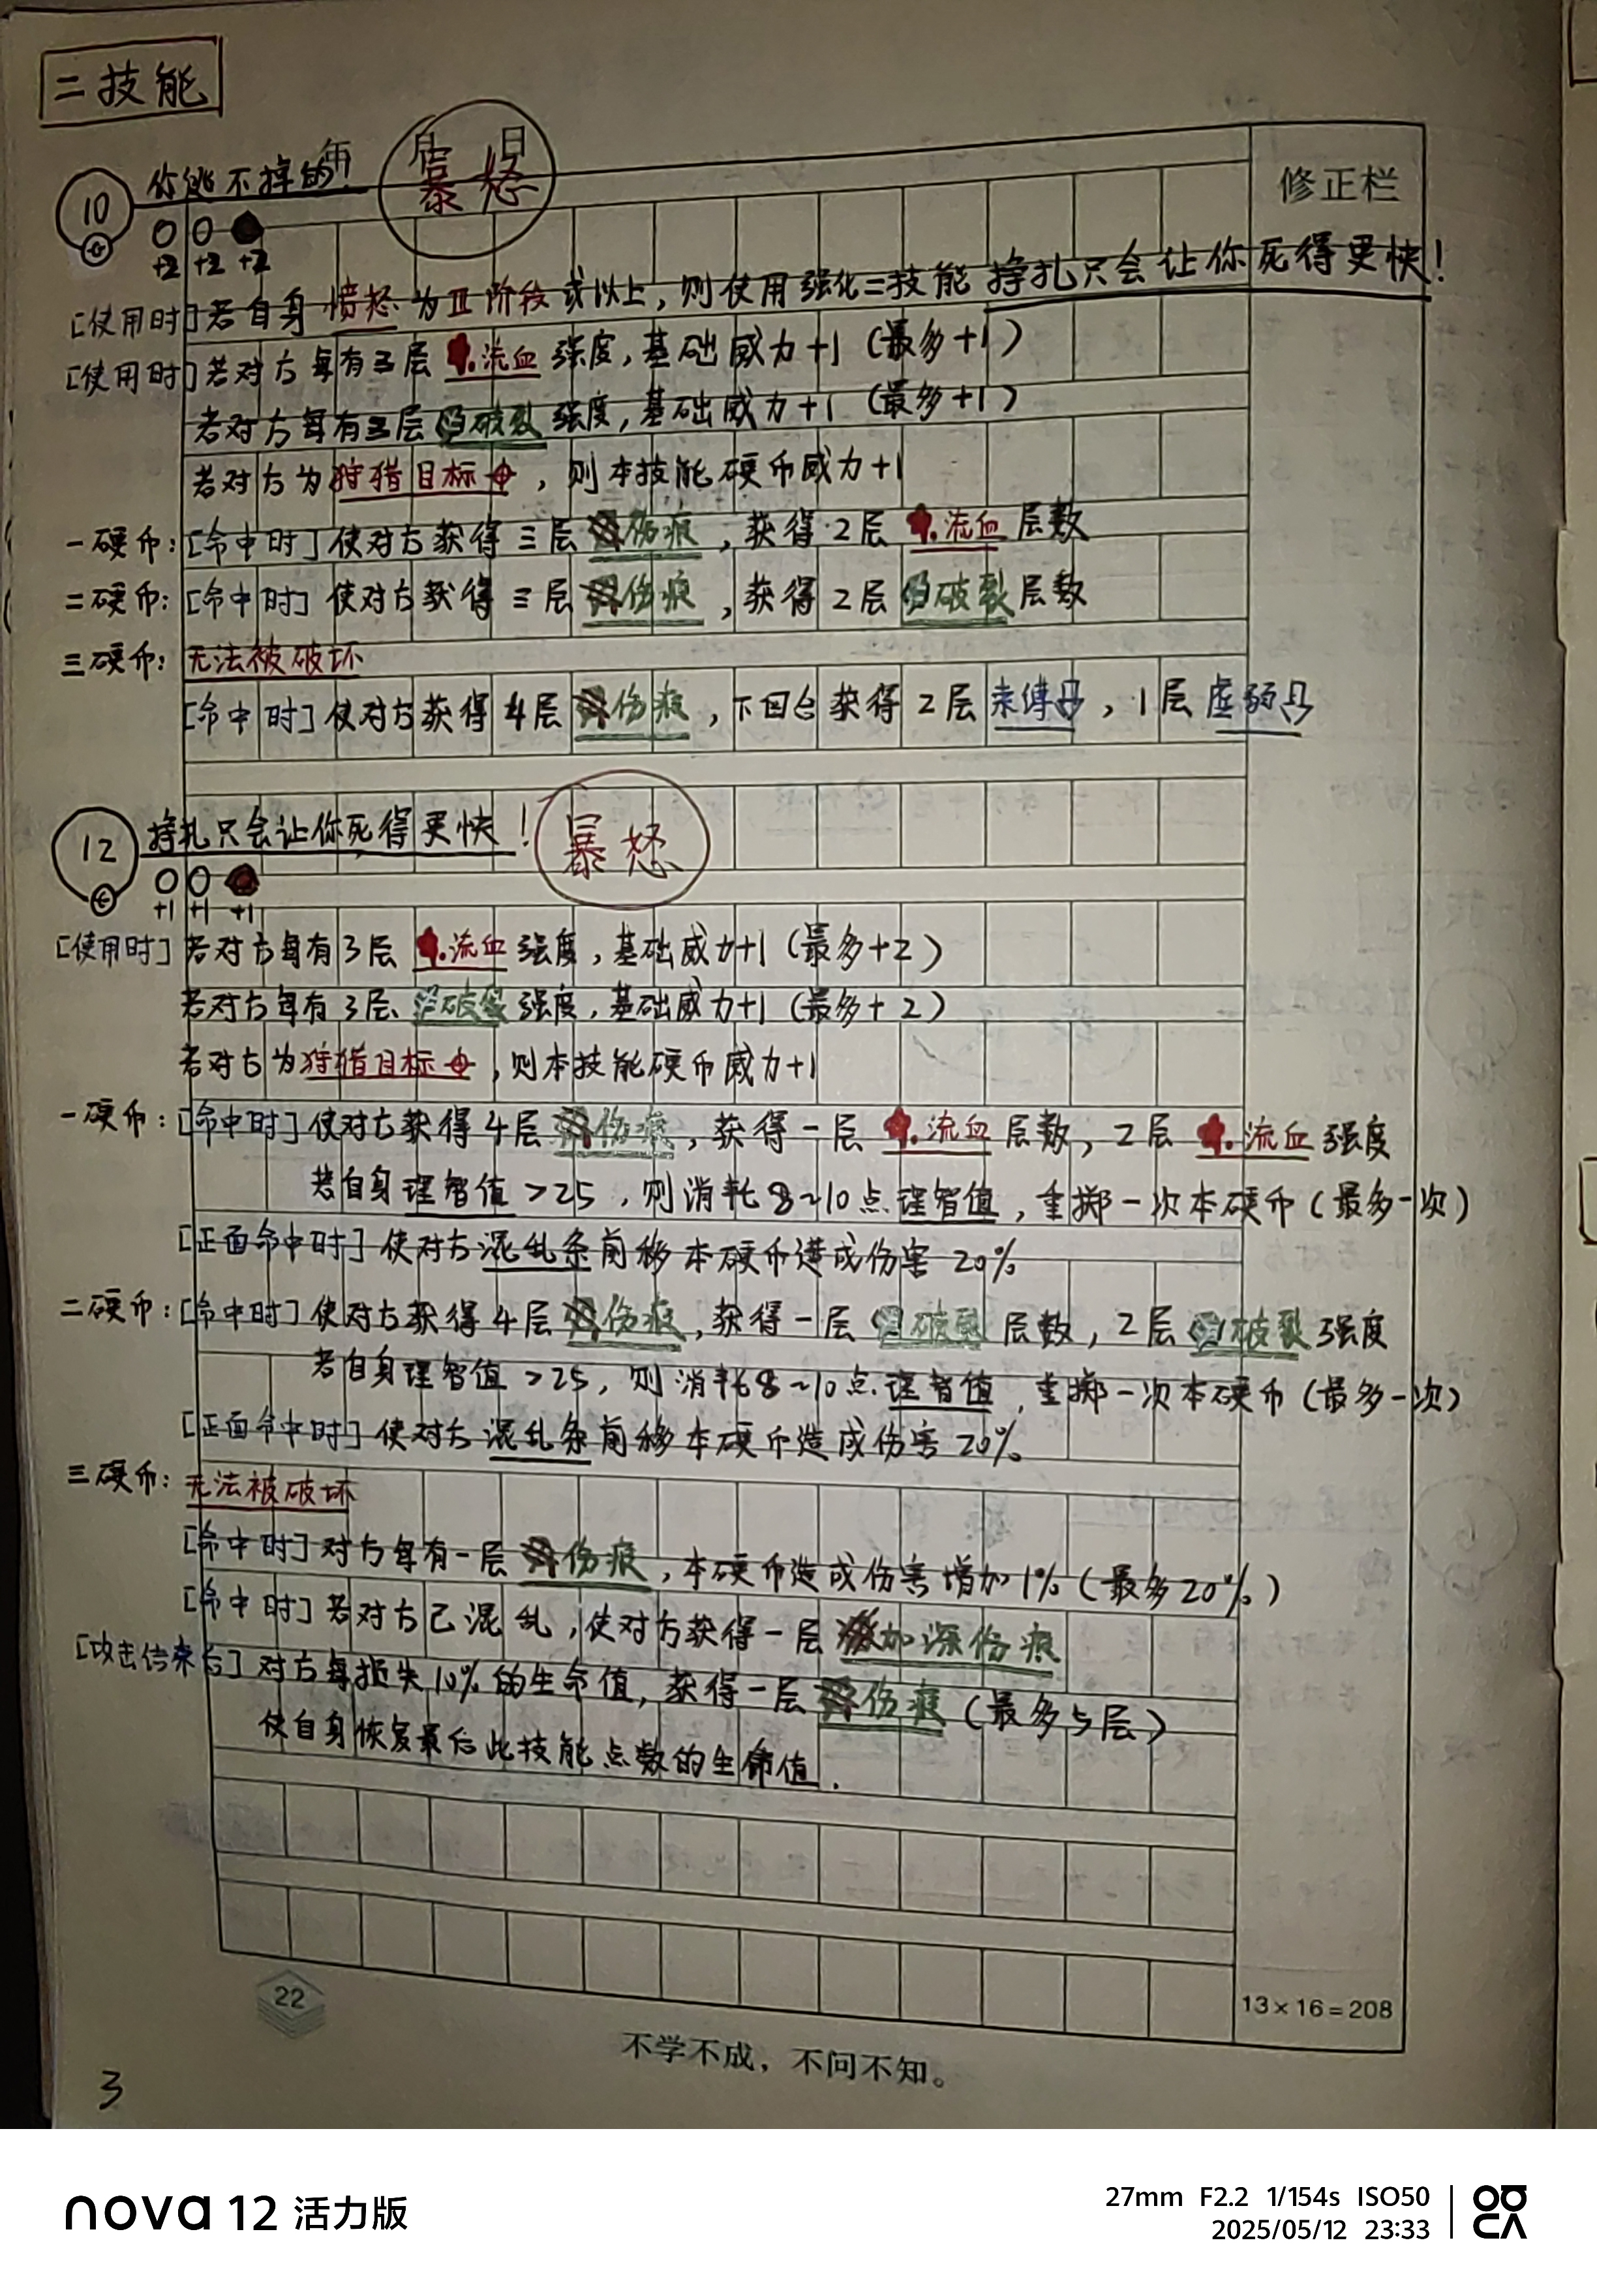 二技能
年 月 日
10 你逃不掉的! 暴怒
修正栏
+2 +2 +2
[使用时]若自身愤怒为Ⅲ阶段或以上,则使用强化二技能 挣扎只会让你死得更快!
[使用时]若对方每有三层流血强度,基础威力+1(最多+1)
若对方每有三层破裂强度,基础威力+1(最多+1)
若对方为狩猎目标,则本技能硬币威力+1
一硬币:[命中时]使对方获得三层伤痕,获得2层流血层数
二硬币:[命中时]使对方获得三层伤痕,获得2层破裂层数
三硬币:无法被破坏
[命中时]使对方获得4层伤痕,下回合获得2层束缚,1层虚弱
12 挣扎只会让你死得更快! 暴怒
+1 +1 +1
[使用时]若对方每有3层流血强度,基础威力+1(最多+2)
若对方每有3层破裂强度,基础威力+1(最多+2)
若对方为狩猎目标,则本技能硬币威力+1
一硬币:[命中时]使对方获得4层伤痕,获得一层流血层数,2层流血强度
若自身理智值>25,则消耗8~10点理智值,重掷一次本硬币(最多一次)
[正面命中时]使对方混乱条前移本硬币造成伤害20%
二硬币:[命中时]使对方获得4层伤痕,获得一层破裂层数,2层破裂强度
若自身理智值>25,则消耗8~10点理智值,重掷一次本硬币(最多一次)
[正面命中时]使对方混乱条前移本硬币造成伤害20%
三硬币:无法被破坏
[命中时]对方每有一层伤痕,本硬币造成伤害增加1%(最多20%)
[命中时]若对方已混乱,使对方获得一层加深伤痕
[攻击结束后]对方每损失10%的生命值,获得一层伤痕(最多5层)
使自身恢复最后此技能点数的生命值.
22
13×16=208
不学不成,不问不知。
3
nova 12 活力版
27mm F2.2 1/154s ISO50
2025/05/12 23:33